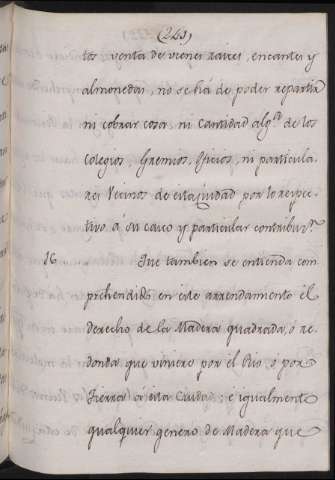 (249)
tos venta de vienes raires, encantes y
almonedas, no se há de poder repartir
ni cobrar cosa, ni Cantidad alg.ª de los
Colegios, Gremios, Oficios, ni particula-
res Vecinos de esta Ciudad por lo respec-
tivo á su cargo y particular contribuz.n
16 Que tambien se entienda com
prehendido en este arrendamiento el
derecho de la Madera quadrada, ó re-
donda que viniere por el Rio, ó por
Tierra á esta Ciudad; é igualmente
qualquier genero de Madera que